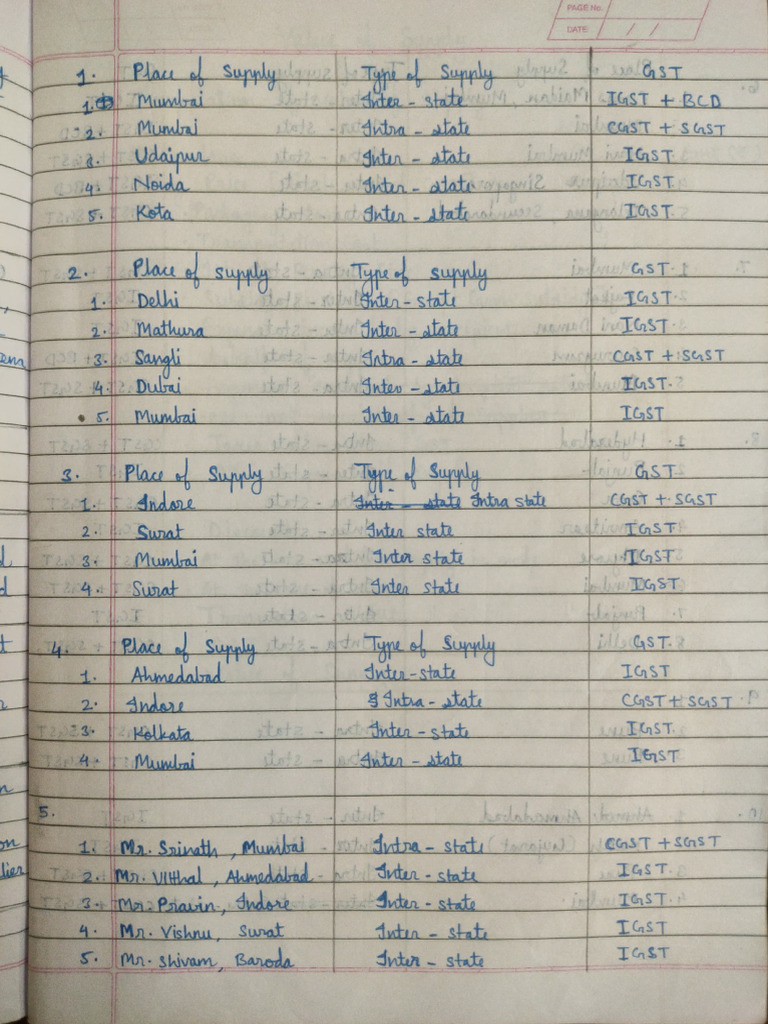 PAGE No.
DATE / /
1. Place of Supply Type of Supply GST
1. Mumbai Inter-state IGST + BCD
2. Mumbai Intra-state CGST + SGST
3. Udaipur Inter-state IGST
4. Noida Inter-state IGST
5. Kota Inter-state IGST
2. Place of supply Type of supply GST
1. Delhi Inter-state IGST
2. Mathura Inter-state IGST
3. Sangli Intra-state CGST + SGST
4. Dubai Inter-state IGST
5. Mumbai Inter-state IGST
3. Place of Supply Type of Supply GST
1. Indore Inter-state Intra state CGST + SGST
2. Surat Inter state IGST
3. Mumbai Inter state IGST
4. Surat Inter state IGST
4. Place of Supply Type of Supply GST
1. Ahmedabad Inter-state IGST
2. Indore Intra-state CGST + SGST
3. Kolkata Inter-state IGST
4. Mumbai Inter-state IGST
5.
1. Mr. Srinath, Mumbai Intra-state CGST + SGST
2. Mr. Vitthal, Ahmedabad Inter-state IGST
3. Mr. Pravin, Indore Inter-state IGST
4. Mr. Vishnu, Surat Inter-state IGST
5. Mr. Shivam, Baroda Inter-state IGST